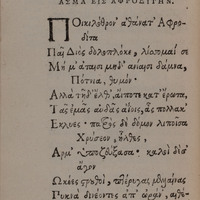 ΑΣΜΑ ΕΙΣ ΑΦΡΟΔΙΤΗΝ.
Ποικιλόθρον᾽ ἀθάνατ᾽ Ἀφρο-
δίτα
Παῖ Διὸς δολοπλόκε, λίσσομαί σε
Μή μ᾽ ἄταισι μηδ᾽ ἀνίαισι δάμνα,
Πότνια, θυμόν·
Ἀλλὰ τῇδ᾽ ἔλθ᾽, αἴποτε κατ᾽ ἔρωτα,
Τᾶς ἐμᾶς αὐδᾶς ἀΐοις, ἇς πολλάκ᾽
Ἔκλυες· πατρὸς δὲ δόμον λιποῖσα
Χρύσεον, ἦλθες,
Ἅρμ᾽ ὑποζεύξασα· καλοὶ δέ σ᾽
ἆγον
Ὠκέες στρουθοὶ, πτέρυγας μελαίνας
Πυκνὰ δινεῦντες ἀπ᾽ ὠρανῶ, αἰθέ-